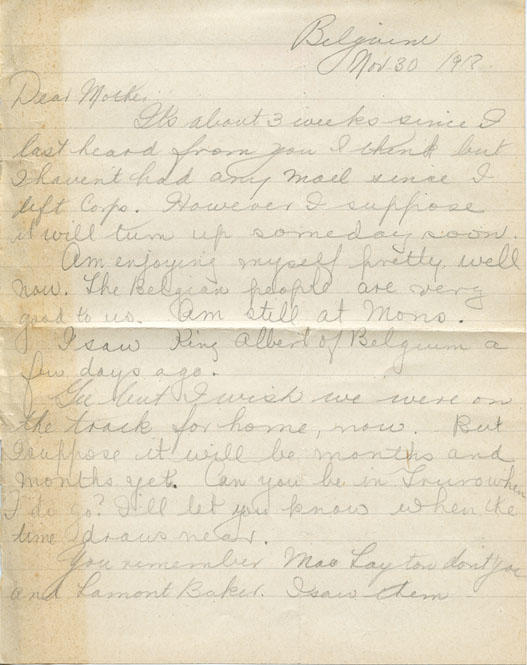 Belgiume
Nov 30 191
Dear Mother,
It's about 3 weeks since I
last heard from you I think but
I havent had any mael since I
left Corps. However I suppose
it will turn up someday soon.
Am enjoying myself pretty well
now. The Belgian people are very
good to us. Am still at Mons.
I saw King Albert of Belgium a
few days ago.
Gee but I wish we were on
the track for home, now. But
I suppose it will be months and
months yet. Can you be in Truro when
I do go? I'll let you know when the
time draws near.
You remember Mac Layton don't you
and Lamont Baker. I saw them